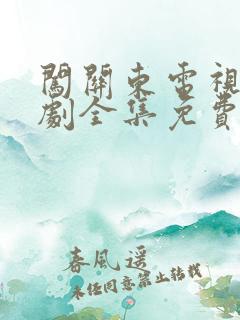 闖關東電視
劇全集免費
春風遥
未经同意禁止转载